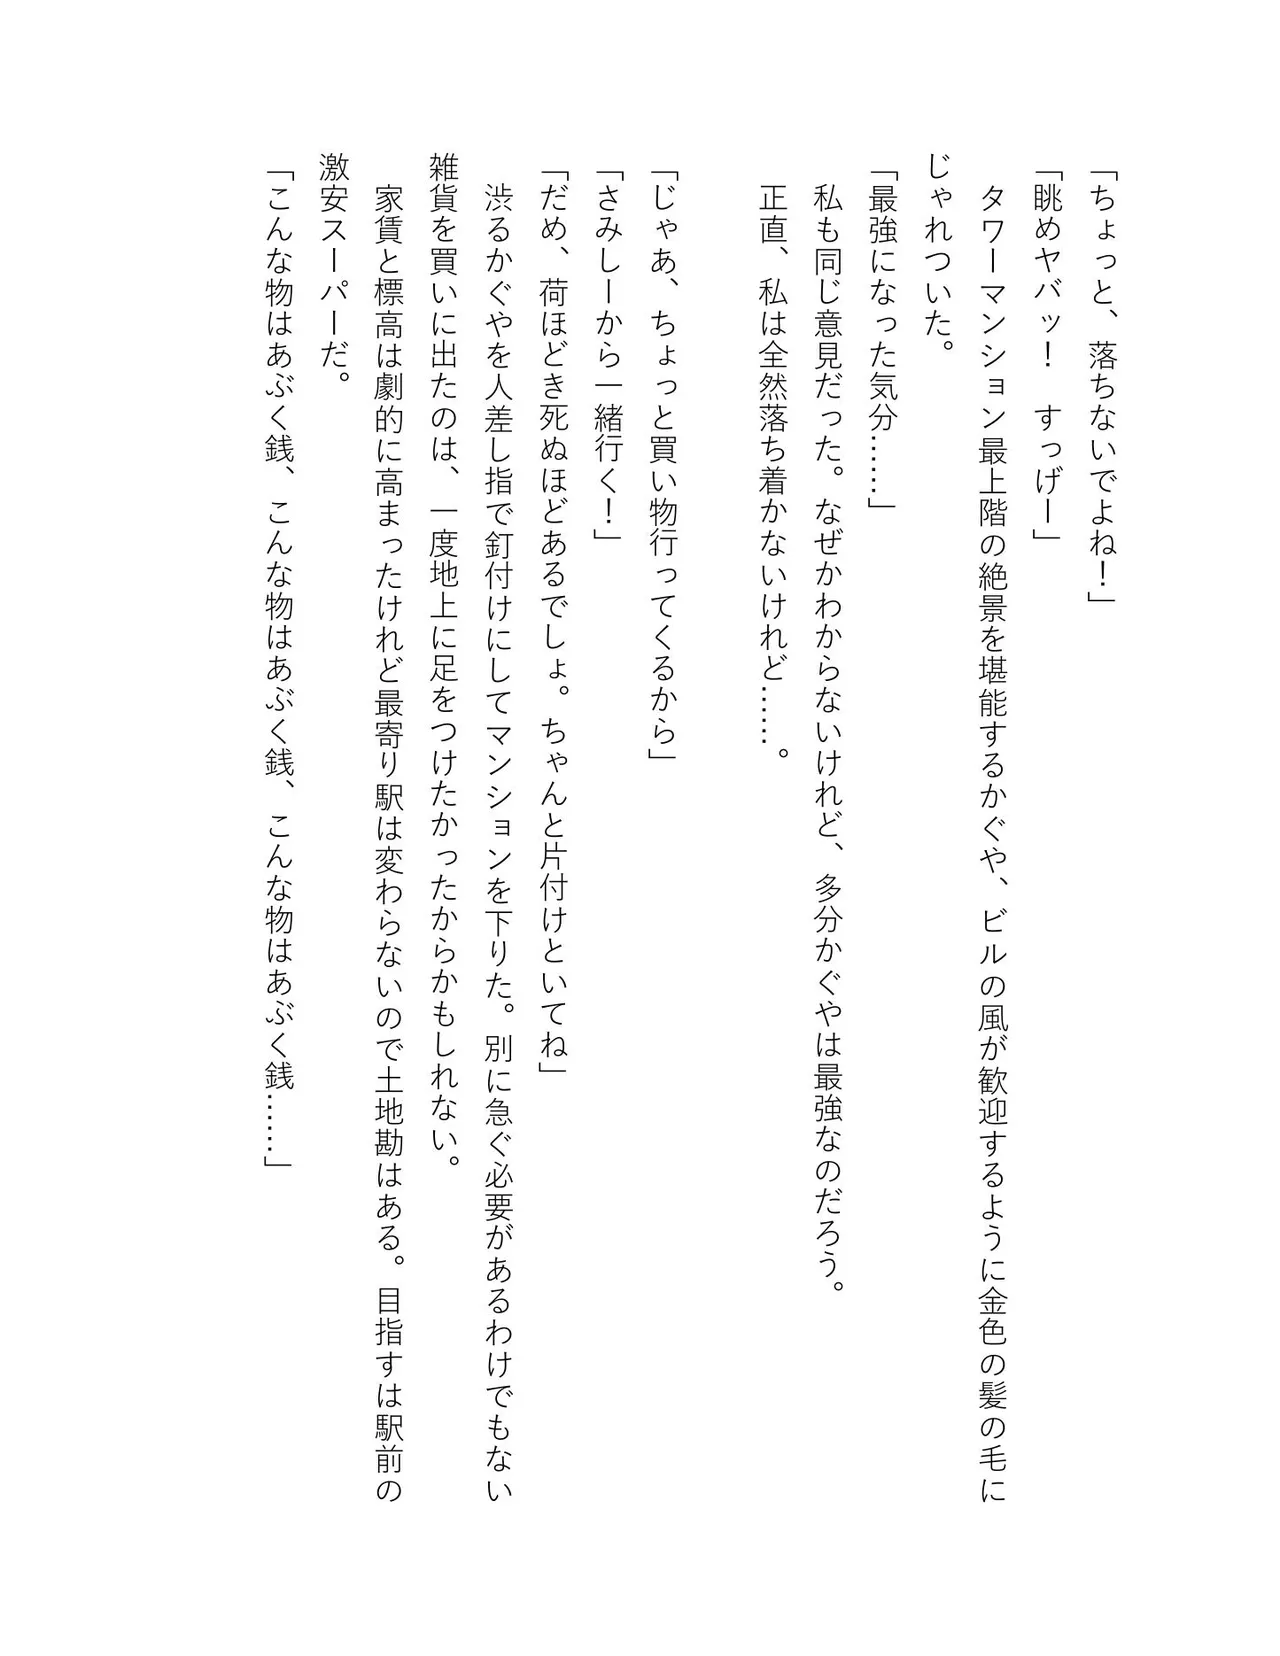 「ちょっと、落ちないでよね！」
「眺めヤバッ！　すっげー」
　タワーマンション最上階の絶景を堪能するかぐや、ビルの風が歓迎するように金色の髪の毛に
じゃれついた。
「最強になった気分……」
　私も同じ意見だった。なぜかわからないけれど、多分かぐやは最強なのだろう。
　正直、私は全然落ち着かないけれど……。
「じゃあ、ちょっと買い物行ってくるから」
「さみしーから一緒行く！」
「だめ、荷ほどき死ぬほどあるでしょ。ちゃんと片付けといてね」
　渋るかぐやを人差し指で釘付けにしてマンションを下りた。別に急ぐ必要があるわけでもない
雑貨を買いに出たのは、一度地上に足をつけたかったからかもしれない。
　家賃と標高は劇的に高まったけれど最寄り駅は変わらないので土地勘はある。目指すは駅前の
激安スーパーだ。
「こんな物はあぶく銭、こんな物はあぶく銭、こんな物はあぶく銭……」